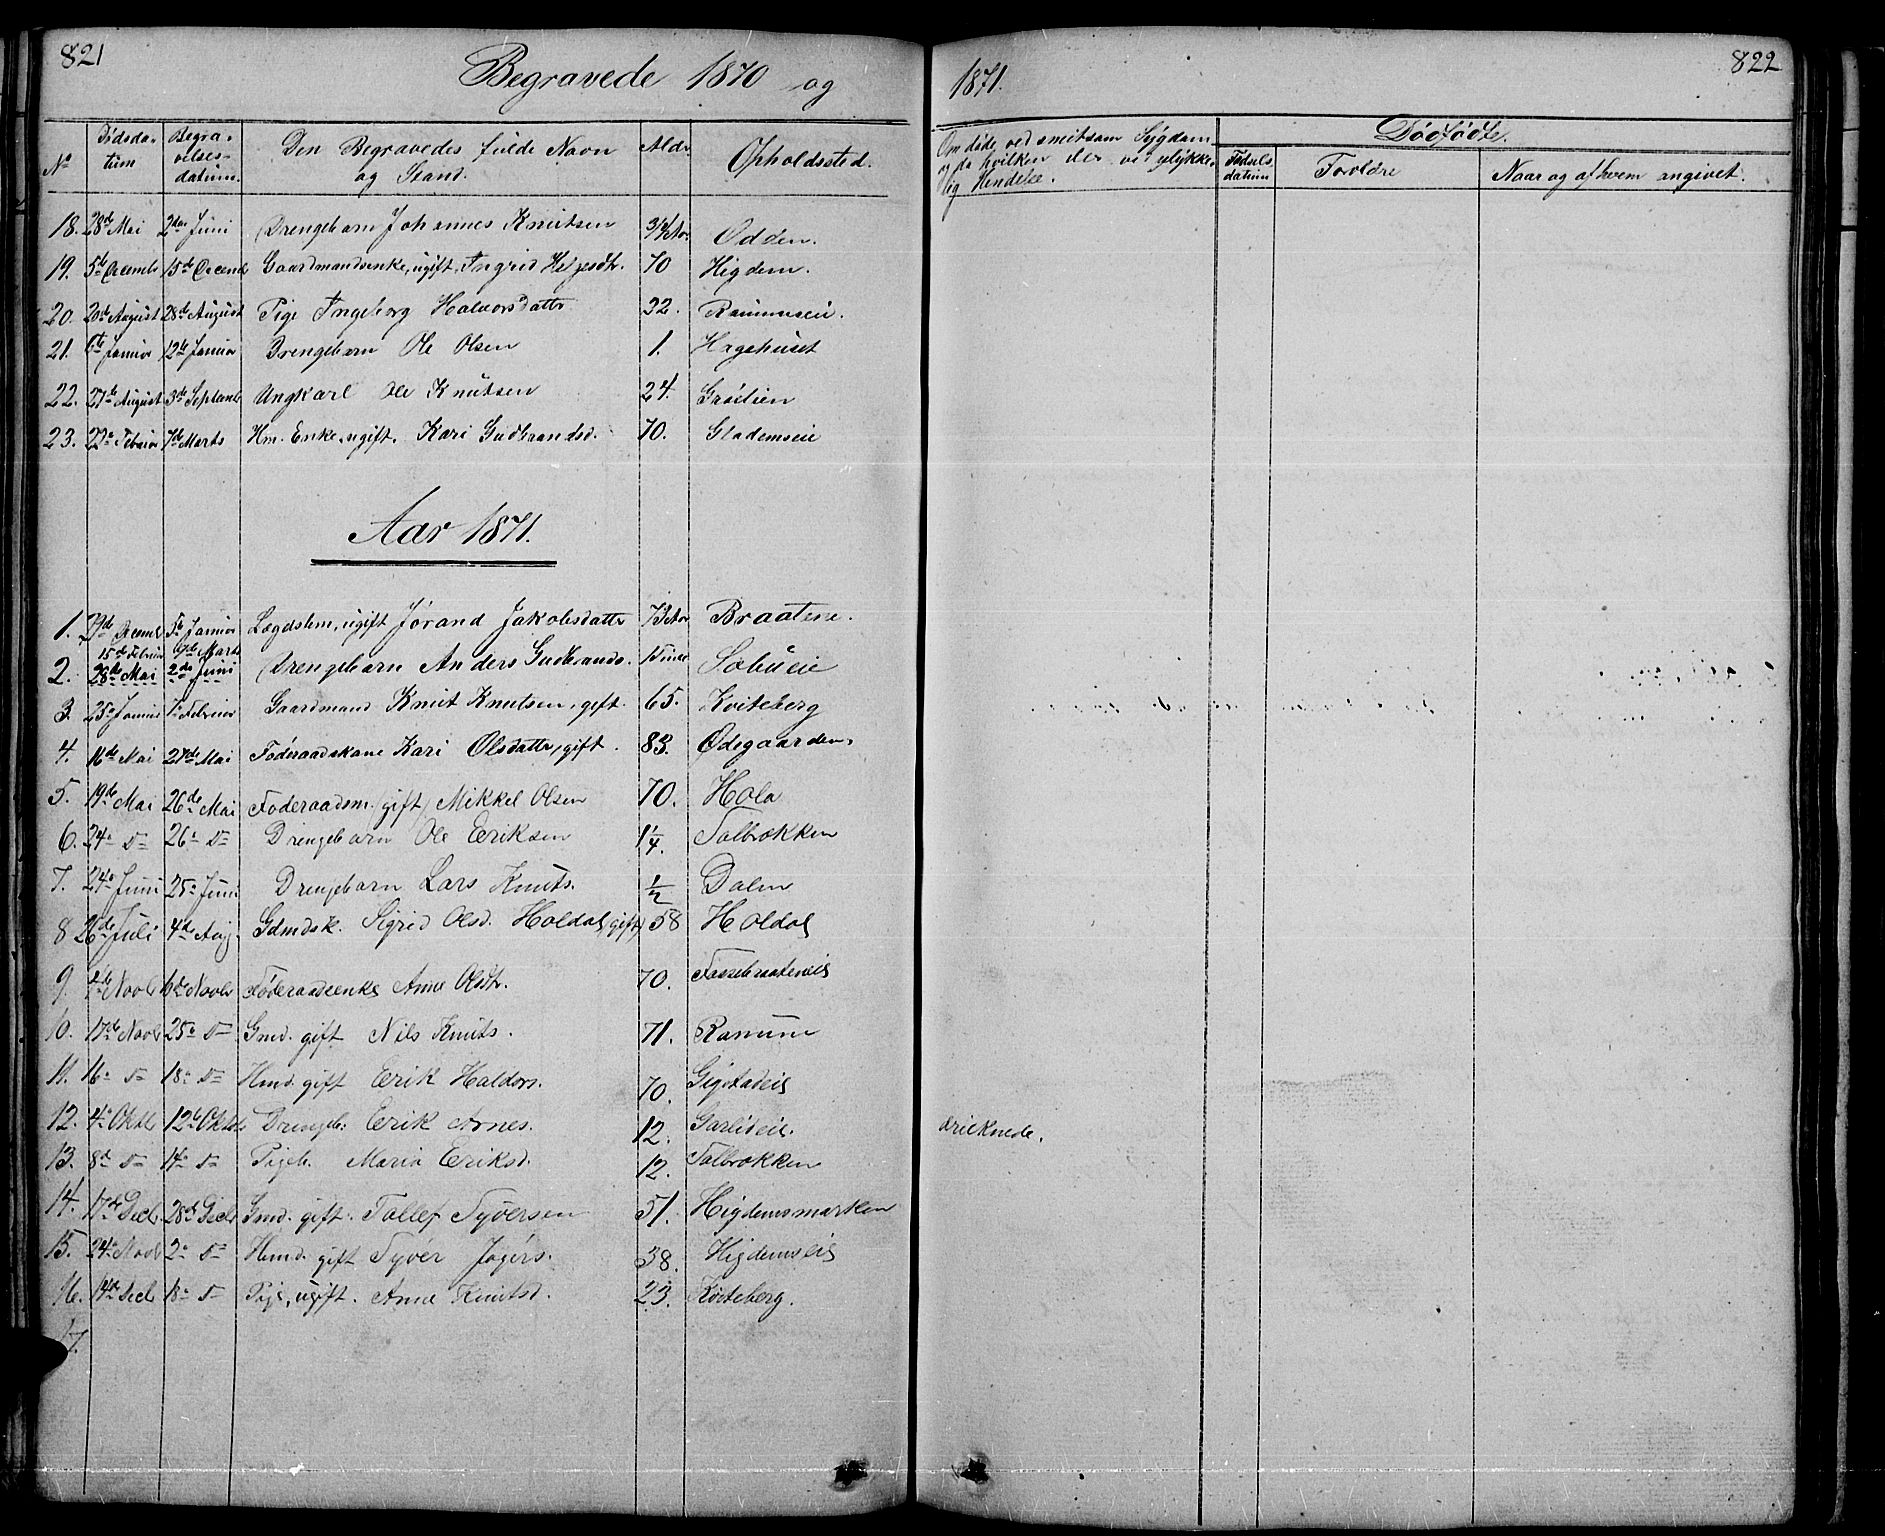 821
Begravede 1870 og
No Dødsda-tum Begra-velses-datum. Den Begravedes fulde Navn og Stand. Alder Opholdssted.
18. 28de Mai 2den Juni Drengebarn Johannes Knutsen 3/4 Aar Odden.
19. 5te Decembr 15de Decembr Gaardmandsenke, ugift, Ingrid Helgesdtr. 70 Higdem.
20. 20de August 28de August Pige Ingeborg Halvorsdattr 22. Ranumseie.
21. 6te Januar 12te Januar Drengebarn Ole Olsen 1. Hagehuset
22. 27de August 3de Septembr Ungkarl Ole Knutsen 24. Grøtlien
23. 22de Februar 7de Marts Hm. Enke, ugift. Kari Gudbrandsd. 70. Slademseie
Aar 1871.
1. 29de Decemb 5te Januar Lægdslem, ugift Jørand Jakobsdattr 73 Aar Braatene.
15de Februar 9de Marts
2. 28de Mai 2den Juni Drengebarn Anders Gudbrands. 1 Time Sæbueie
3. 25de Januar 7de Februar Gaardmand Knut Knutsen, gift. 65. Kviteberg
4. 16de Mai 27de Mai Føderaadskone Kari Olsdattr, gift. 83. Ødegaarden.
5. 19de Mai 26de Mai Føderaadsm. (gift) Mikkel Olsen 70. Hola
6. 24de do 26de do Drengebarn Ole Eriksen 1/4. Solbrækken
7. 24de Juni 25de Juni Drengebarn Lars Knuts. 1/2 Dalen
8 26de Juli 4de Aug. Gdmdsk. Sigrid Olsd. Holdal, (gift) 58 Holdal
9. Novbr Novbr Føderaadsenke Anne Olsdtr. 70.
10. 17de Novbr 25de do Gmd. gift Nils Knuts. 71. Ranum
11. 16de do 18de do Hmd. gift Erik Haldors. 70. Gigstadeie
12. 4de Oktbr 12te Oktbr Drengeb: Erik Arnes. 12. Garlideie.
13. 8de do 14de do Pigeb. Maria Eriksd. 12. Solbrækken
14. 17de Decbr 28de Decbr Gmd. gift. Tollef Syversen 51. Higdemsmarken
15. 24de Novbr 2den do Hmd. gift Syver Jogers. 38. Higdemseie
16. 14de Decbr 18de do Pige, ugift. Anne Knutsd. 23. Kviteberg.
17.
822
1871.
Om døde ved smitsom Sygdom og da hvilken eller ved ulykke-lig Hendelse. Dødfødte.
Fødsels datum Forældre Naar og af hvem angivet.
druknede.